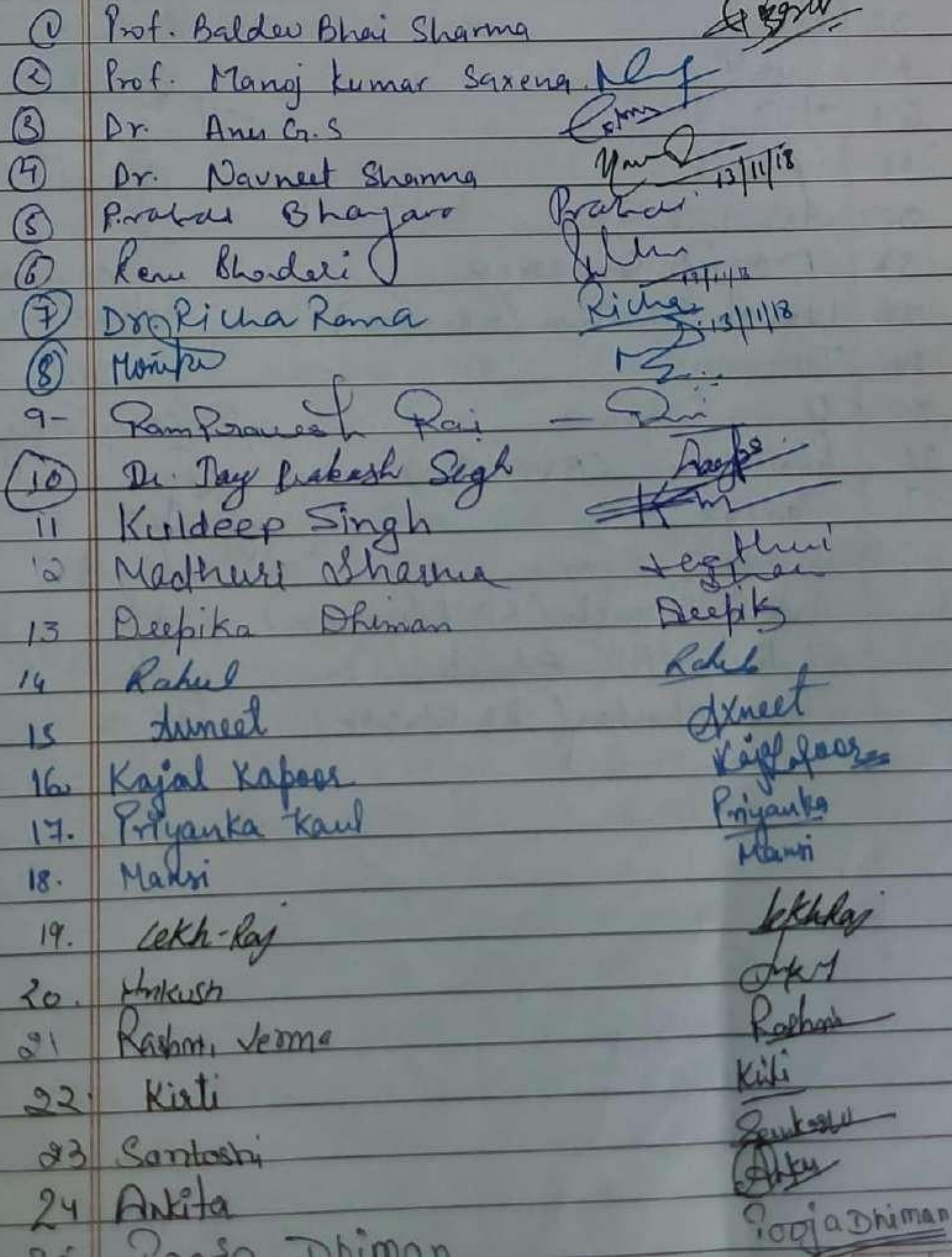 1 Prof. Baldev Bhai Sharma
2 Prof. Manoj Kumar Saxena
3 Dr. Anu G.S
4 Dr. Navneet Sharma 13/11/18
5 Bhayaro
6 Renu Bhoderi 13/11/18
7 Dr. Richa Rama Richa 13/11/18
8 Monika
9- Ram Pravesh Rai - Rai
10 Dr. Jay Prakash Segh
11 Kuldeep Singh
12 Madhuri Sharma
13 Deepika Dhiman Deepik
14 Rahul Rahul
15 Avneet Avneet
16. Kajal Kapoor Kajal Kapoor
17. Priyanka Kaul Priyanka
18. Mansi Mansi
19. Lekh-Raj LekhRaj
20. Ankush
21 Rashmi Verma Rashmi
22. Kirti Kirti
23 Santoshi
24 Ankita
Pooja Dhiman Pooja Dhiman